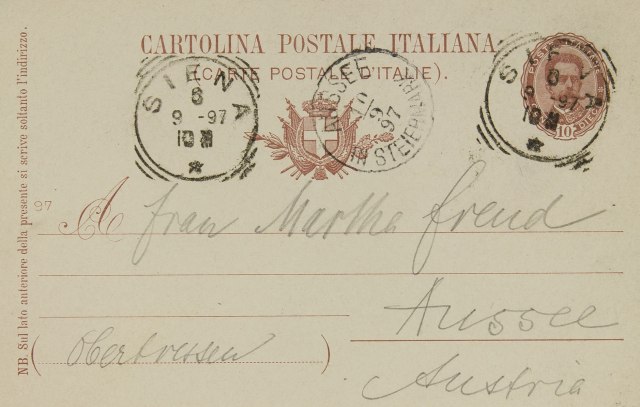 CARTOLINA POSTALE ITALIANA
(CARTE POSTALE D'ITALIE).
SIENA
6
9 -97
10 M
AUSSEE
10
9
97
IN STEIERMARK
SIENA
6
9 -97
10 M
10 C. DIECI
NB. Sul lato anteriore della presente si scrive soltanto l'indirizzo.
97
A Frau Martha Freud
Aussee
(Obertressen)
Austria